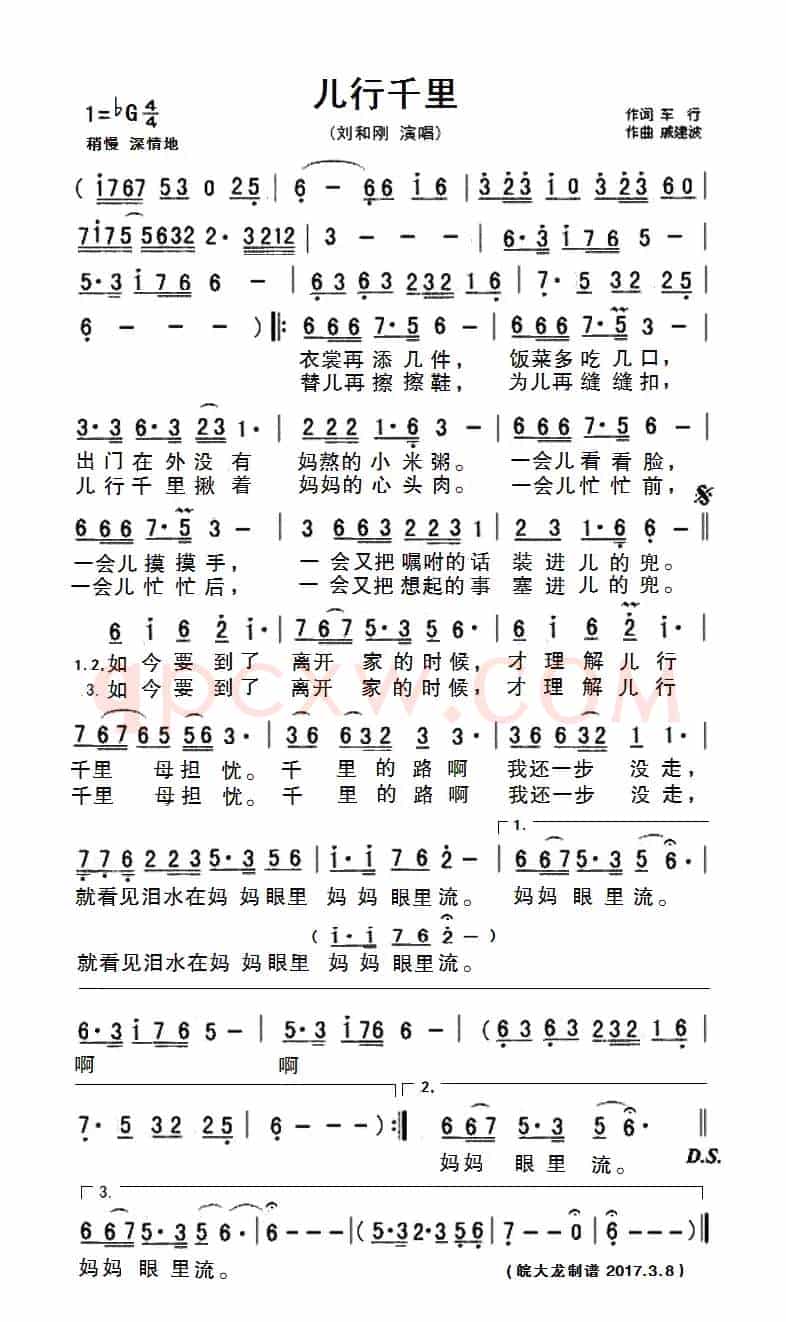 儿行千里
1=♭G 4/4
(刘和刚 演唱)
作词 车 行
稍慢 深情地
作曲 戚建波
( i767 53 0 25 | 6 - 66 i6 | 323 i0 323 60 |
7i75 5632 2· 3212 | 3 - - - | 6·3 i76 5 - |
5·3 i76 6 - | 63 63 232 16 | 7· 5 32 25 |
6 - - - ) ‖: 666 7·5 6 - | 666 7·5 3 - |
衣裳再添几件， 饭菜多吃几口，
替儿再擦擦鞋， 为儿再缝缝扣，
3·3 6·3 23 1· | 222 1·6 3 - | 666 7·5 6 - |
出门在外没有 妈熬的小米粥。 一会儿看看脸，
儿行千里揪着 妈妈的心头肉。 一会儿忙忙前，
666 7·5 3 - | 3 663 2231 | 23 1·6 6 - ‖
一会儿摸摸手， 一会又把嘱咐的话 装进儿的兜。
一会儿忙忙后， 一会又把想起的事 塞进儿的兜。
6 i 6 2 i· | 767 5·3 56 | 6 i 6 2 i· |
1.2.如今要到了 离开 家的时候，才理解儿行
3.如今要到了 离开 家的时候，才理解儿行
qpcxw.com
767 65 56 3· | 36 632 3 3· | 36 632 1 1· |
千里 母担忧。千 里的路啊 我还一步 没走，
千里 母担忧。千 里的路啊 我还一步 没走，
1.
776 223 5·3 56 | i·i 76 2 - | 667 5·3 5 6· |
就看见泪水在妈妈眼里 妈妈 眼里流。 妈妈 眼里流。
( i·i 76 2 - )
就看见泪水在妈妈眼里 妈妈 眼里流。
6·3 i76 5 - | 5·3 i76 6 - | (63 63 232 16 |
啊 啊
2.
7· 5 32 25 | 6 - - ) :‖ 667 5·3 5 6· ‖
妈妈 眼里 流。
D.S.
3.
667 5·3 5 6· | 6 - - - | (5·3 2·3 5 56 | 7 - - 0 | 6 - - - )‖
妈妈 眼里流。
(皖大龙制谱 2017.3.8)